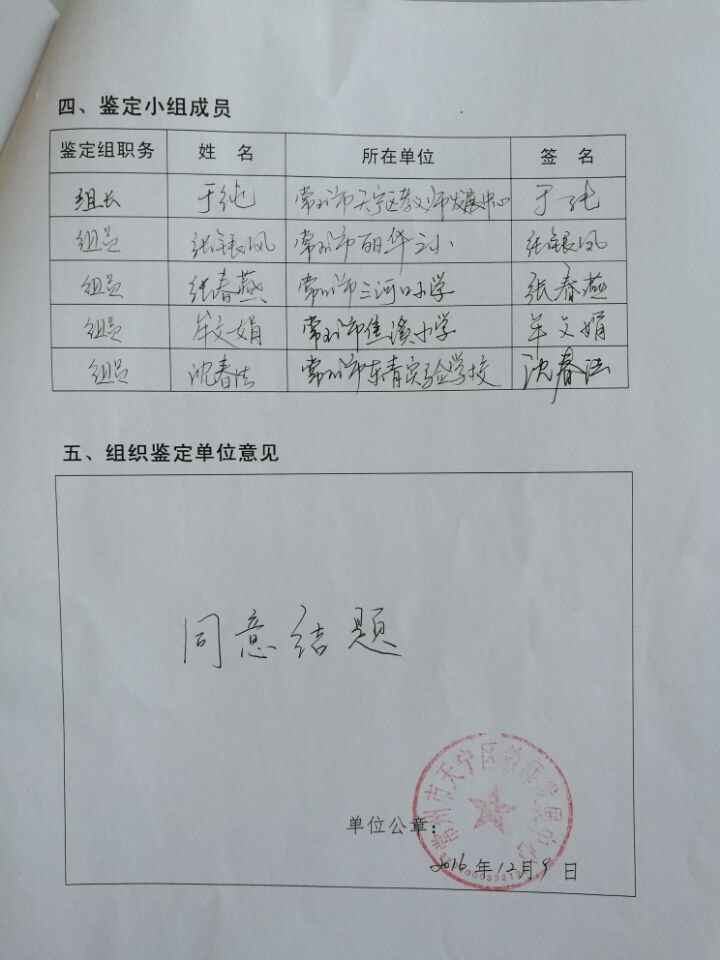 四、鉴定小组成员
鉴定组职务 姓 名 所在单位 签 名
组长 于纯 常州市天宁区教师发展中心 于纯
组员 张银凤 常州市丽华三小 张银凤
组员 张春燕 常州市三河口小学 张春燕
组员 牟文娟 常州市焦溪小学 牟文娟
组员 沈春洁 常州市东青实验学校 沈春洁
五、组织鉴定单位意见
同意结题
常州市天宁区教师发展中心
单位公章：
2016年12月9日